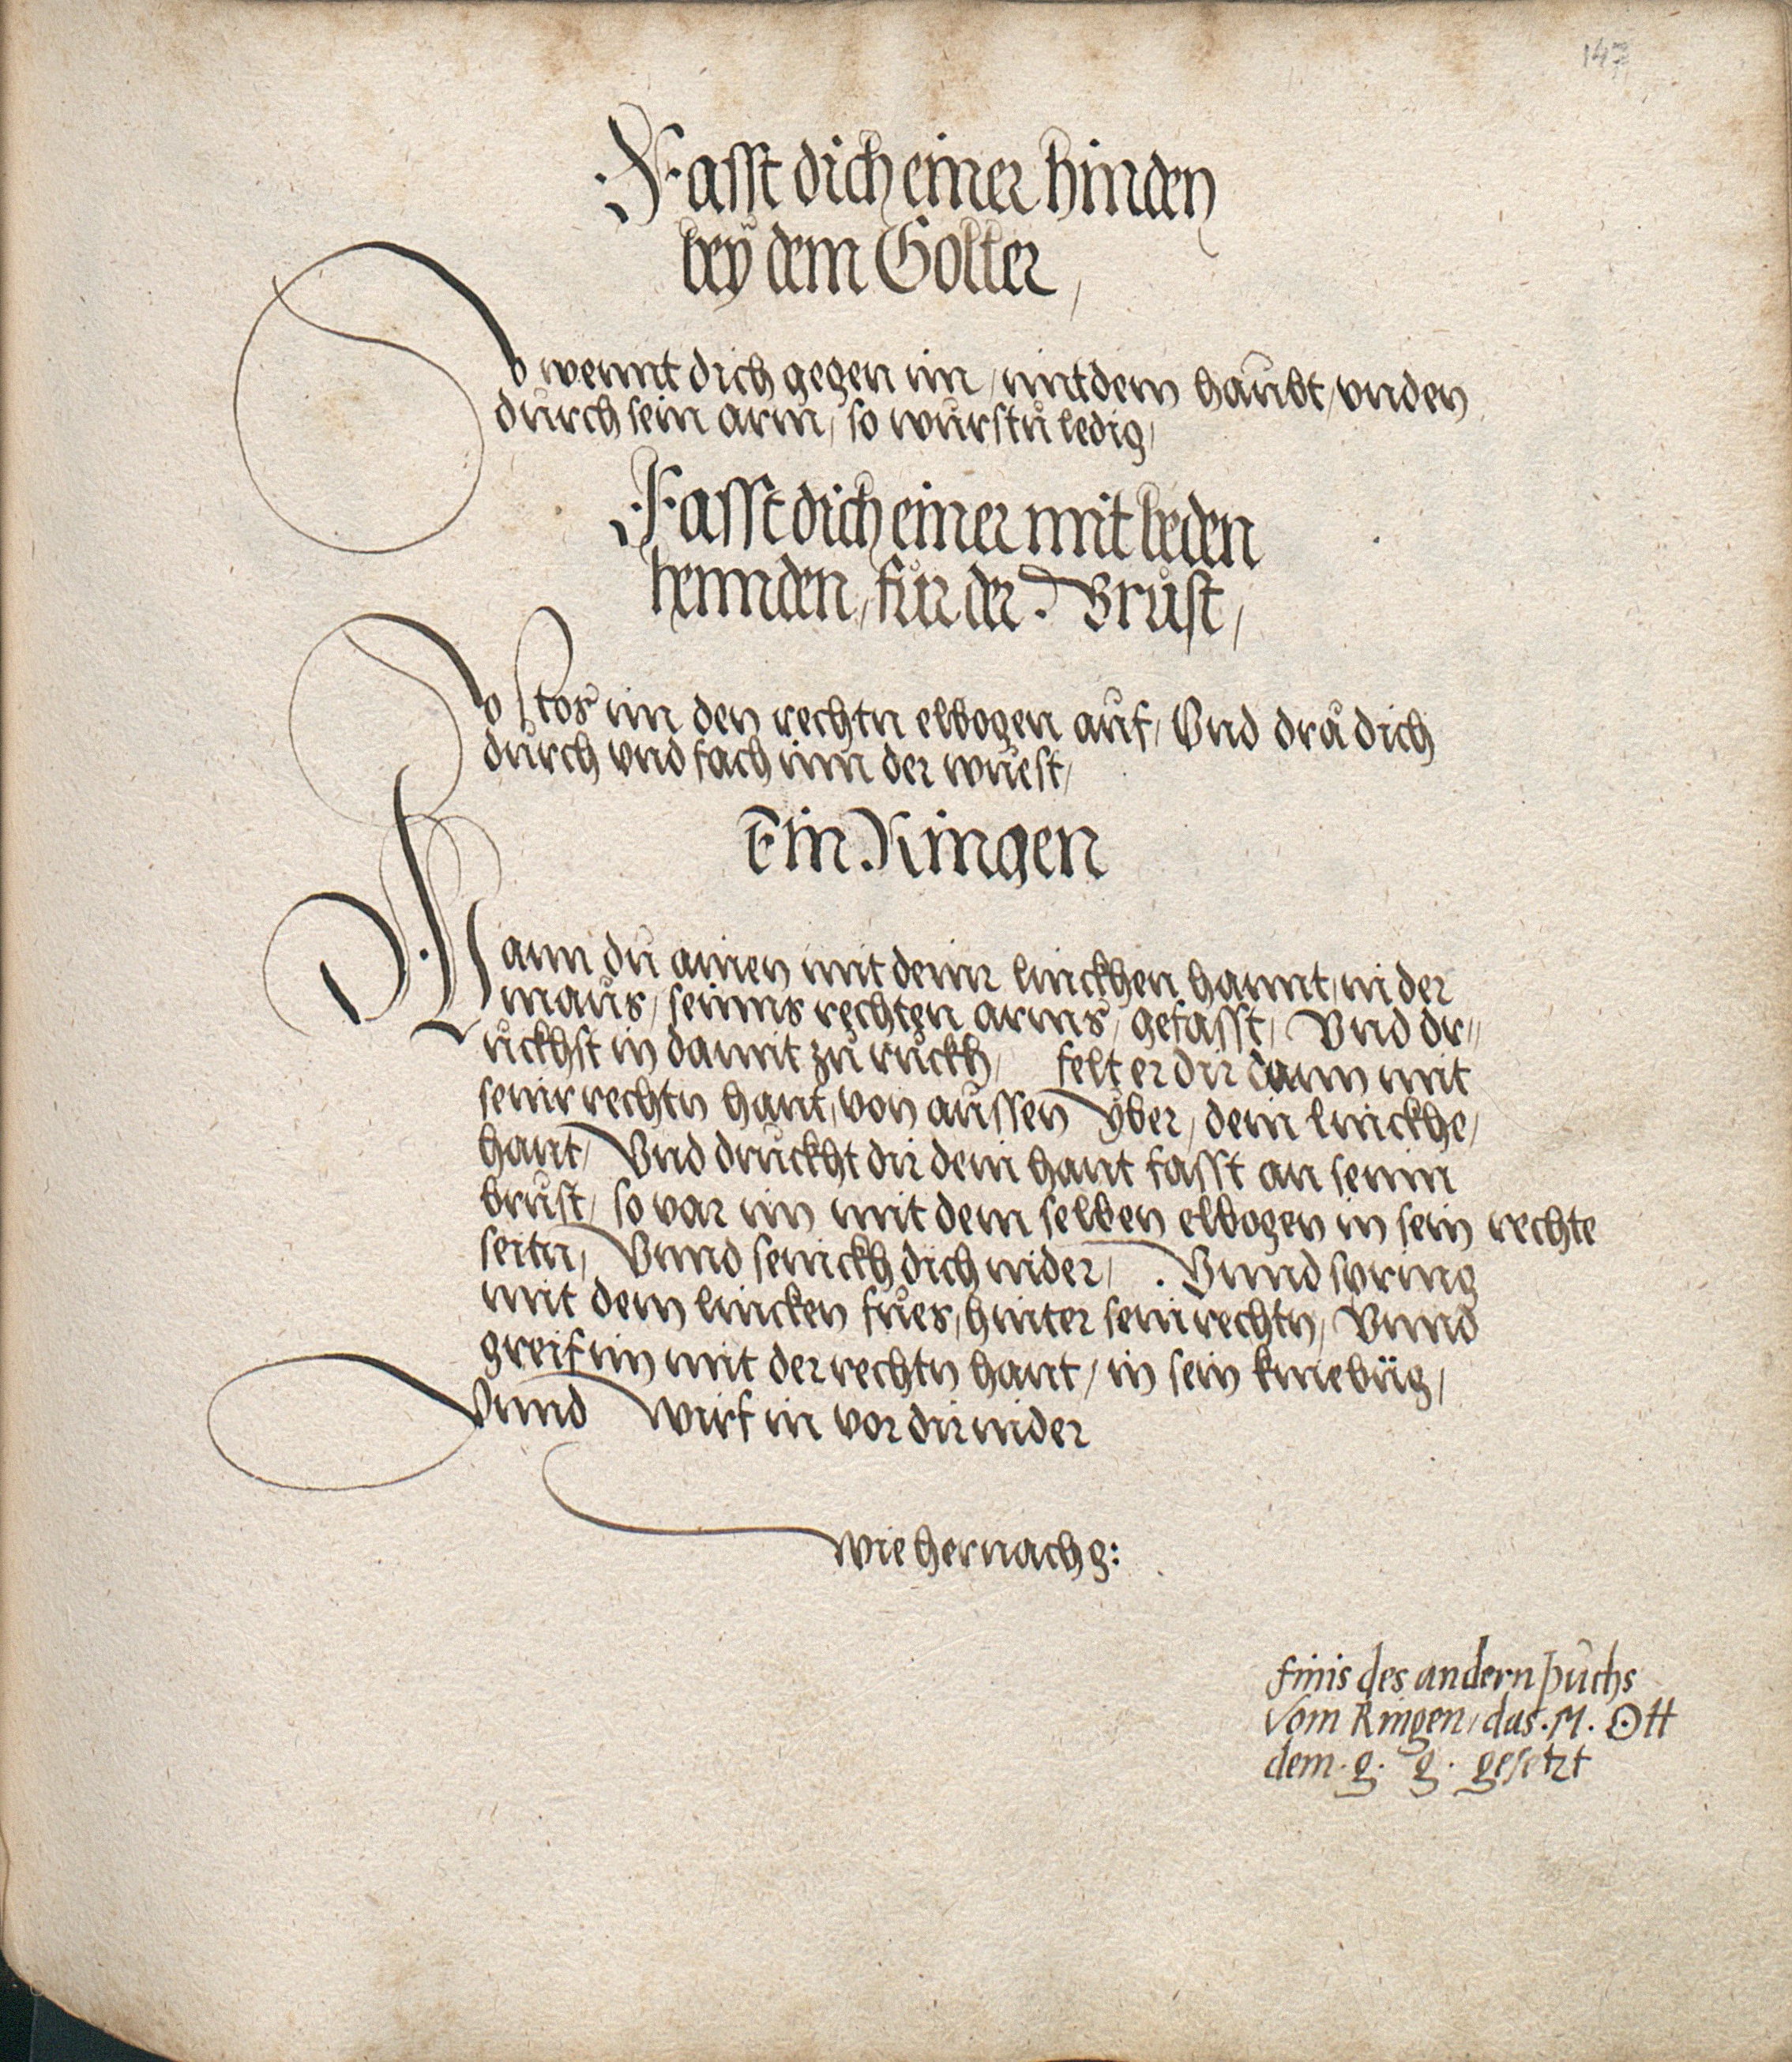 147
Fasst dich einer hinden
bey dem Goller,
So wennt dich gegen im, mit dem haubt, vnden
durch sein arm, so würstu ledig,
Fasst dich einer mit beden
hennden, für der Brust,
So stos im den rechtn elbogen auf, Vnd drå dich
durch vnd fach im der wuest,
Ein Ringen
Wann du ainen mit deinr linckhen hannt, in der
maus, seinns rechten arms, gefasst, Vnd dr„
uckhst in damit zu ruckh, felt er dir dann mit
seinr rechtn hant, von aussen Yber, dein linckhe,
hant, Vnd druckht dir dein hant fasst an seinn
brust, so var im mit dem selben elbogen in sein rechte
seitn, Vnnd senickh dich nider, . Vnnd spring
mit dem lincken fues, hinter sein rechtn, Vnnd
greif im mit der rechtn hant, in sein kniebüg,
Vnnd wirf in vor dir nider
wie hernach g:
finis des andern puchs
Vom Ringen, das .M. Ott
dem . g. g. gesetzt